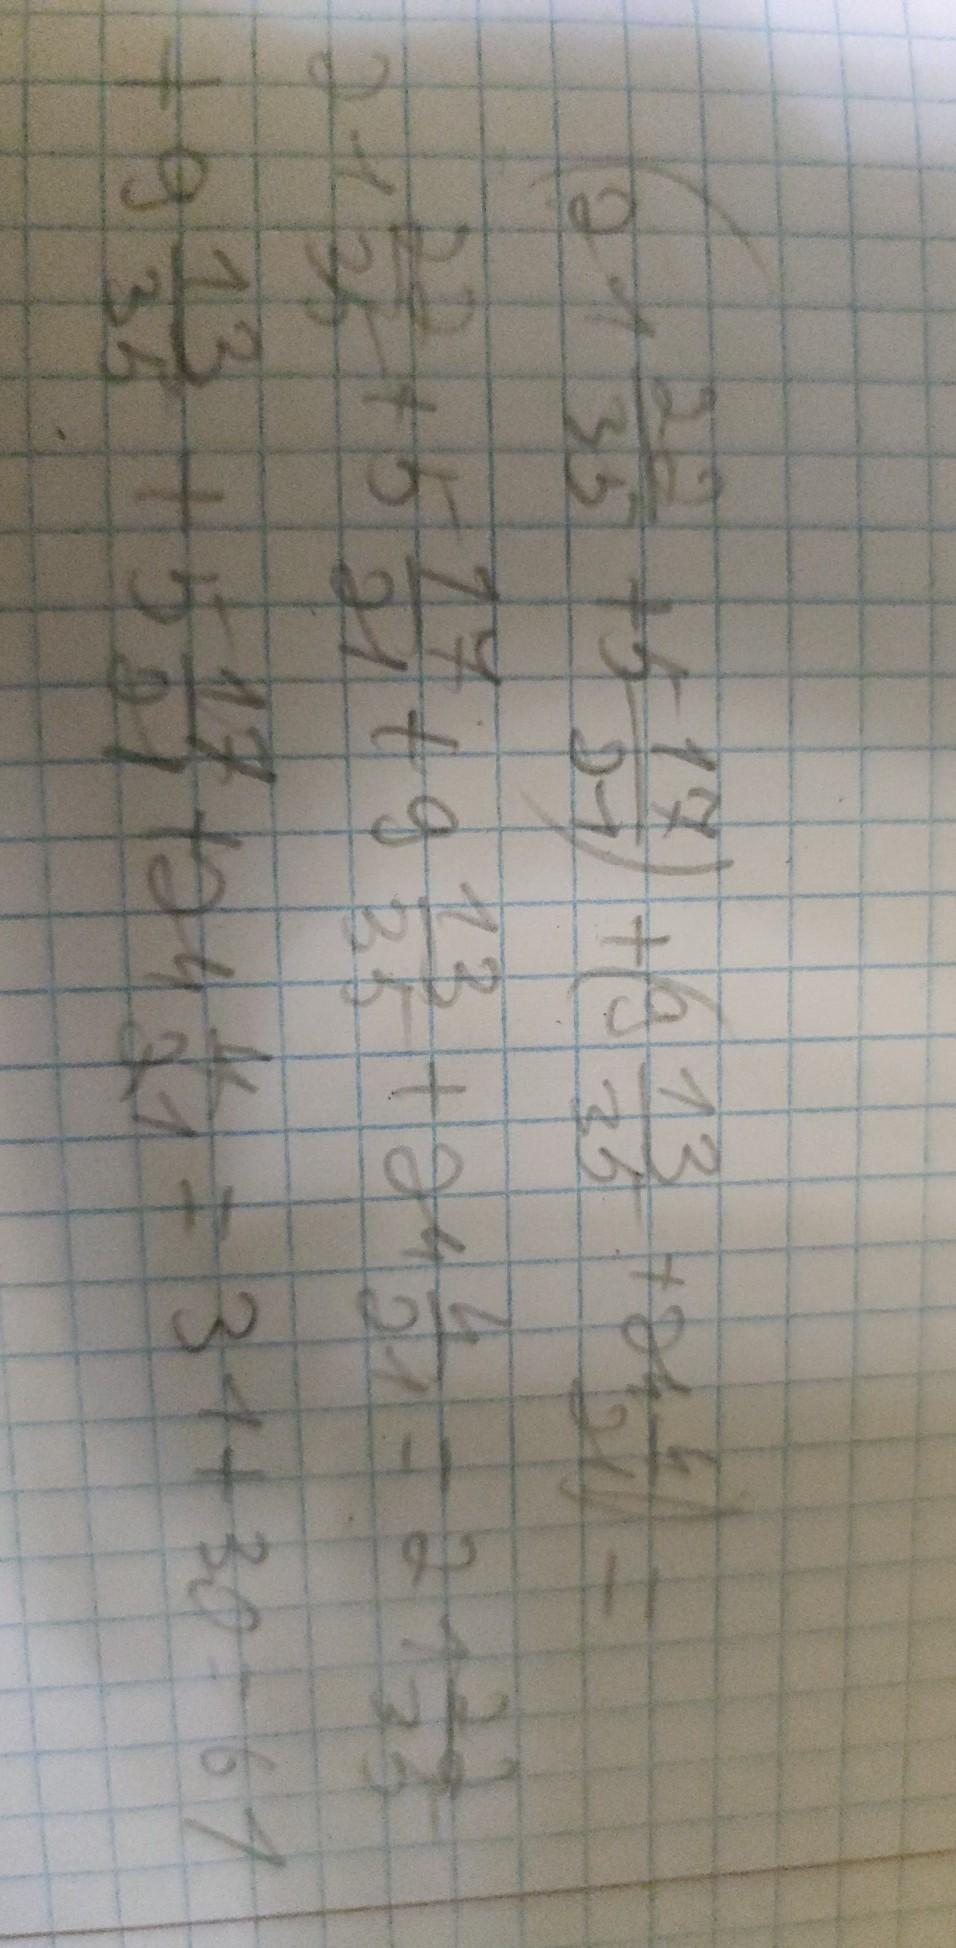 (21 22/35 + 5 17/21) + (9 13/35 + 24 4/21) =
21 22/35 + 5 17/21 + 9 13/35 + 24 4/21 = 21 22/35
+ 9 13/35 + 5 17/21 + 24 4/21 = 31 + 30 = 61